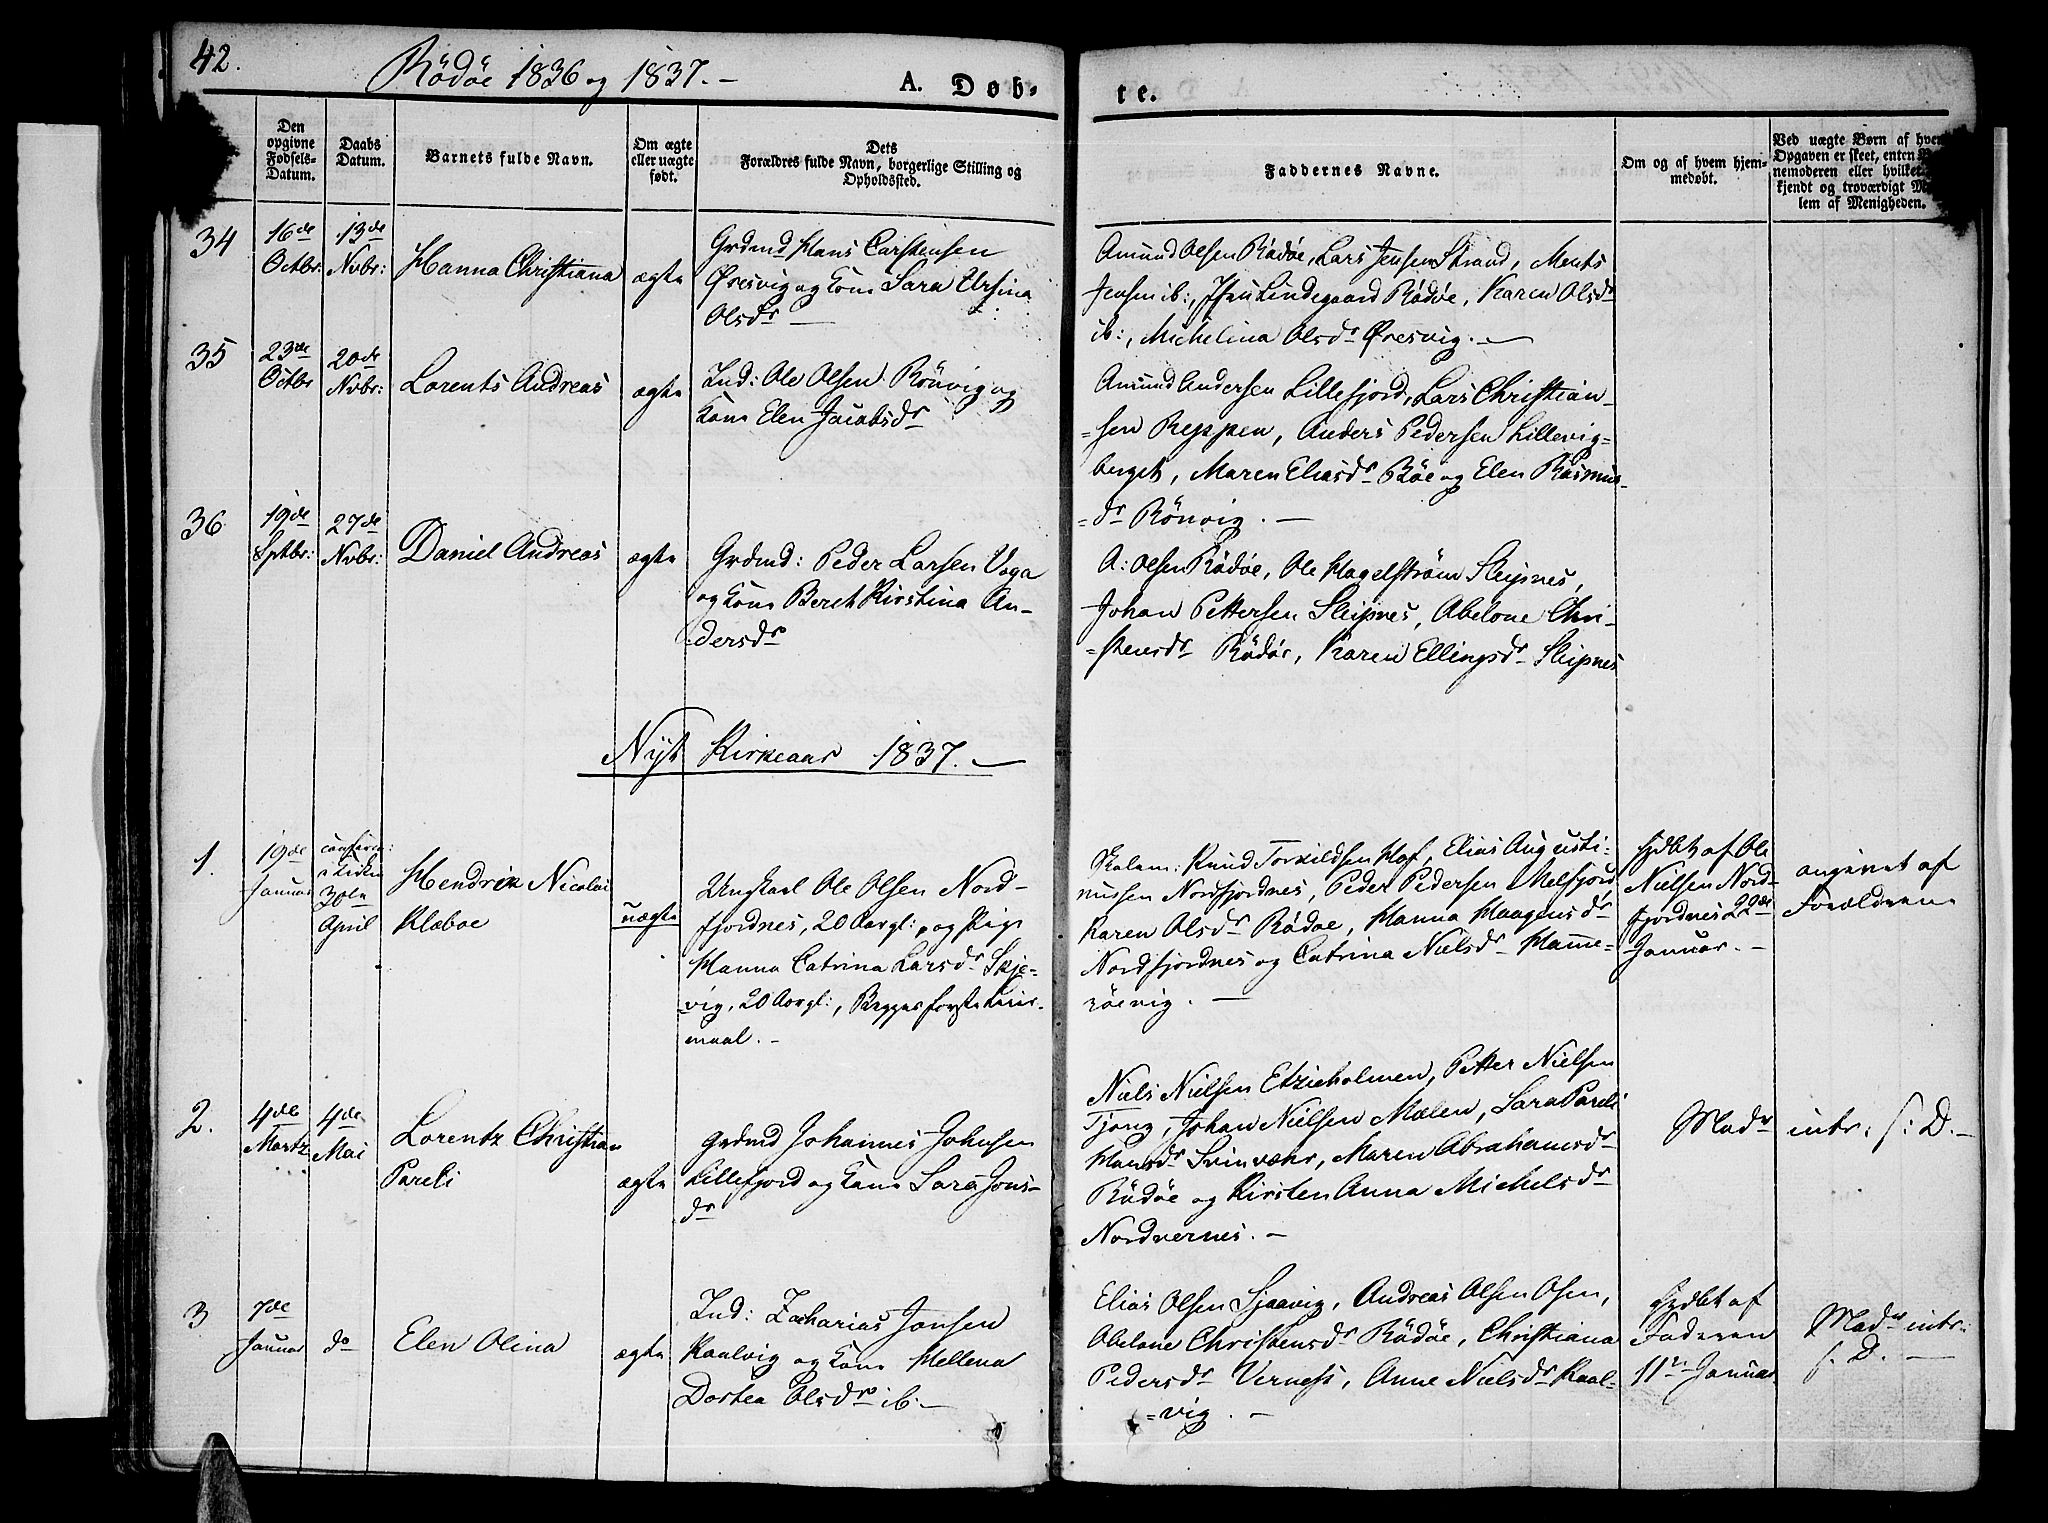 42.
Rödöe 1836 og 1837. –
A. Døb-
te.
Den
opgivne
Fødsels-
Datum.
Daabs
Datum.
Barnets fulde Navn.
Om ægte
eller uægte
født.
Dets
Forældres fulde Navn, borgerlige Stilling og
Opholdssted.
Faddernes Navne.
Om og af hvem hjem-
medøbt.
Ved uægte Børn af hvem
Opgaven er skeet, enten
nemoderen eller hvilket
kjendt og troværdigt
lem af Menigheden.
34
16de
Octbr:
13de
Nvbr:
Hanna Christiana
ægte
Grdmd Hans Carstensen
Øresvig og Kone Sara Ursina
Olsdr –
Amund Olsen Rödöe, Lars Jensen Strand, Ments
Jensen ib:, Lindegaard Rödöe, Karen Olsdr
ib:, Michelina Olsdr Øresvig. –
35
23de
Octbr
20de
Nvbr:
Lorents Andreas
ægte
Ind: Ole Olsen Rönvig og
Kone Elen Jacobsdr
Amund Andersen Lillefjord, Lars Christian-
=sen Reppen, Anders Pedersen Lillevig-
berget, Maren Eliasdr Röe og Elen Rasmus-
=dr Rönvig. –
36
19de
Sptbr:
27de
Nvbr:
Daniel Andreas
ægte
Grdmd: Peder Larsen Vaga
og Kone Beret Kirstina An-
dersdr
A: Olsen Rödöe, Ole Hagelström Sleipnes,
Johan Pettersen Sleipnes, Abelone Chri-
=stensdr Rödöe, Karen Ellingsdr Sleipnes
Nyt Kirkeaar 1837. –
1.
19de
Januar
confirm:
i Kirken
30te
April
Hendrik Nicolai
Klæboe
uægte
Ungkarl Ole Olsen Nord-
fjordnes, 20 Aar gl:, og Pige
Hanna Catrina Larsdr Skje-
vig, 20 Aar gl:, Begges første Leier-
maal. –
Skolem: Knud Torkildsen Hof, Elias Augusti-
nussen Nordfjordnes, Peder Pedersen Melfjord
Karen Olsdr Rödöe, Hanna Haagensdr
Nordfjordnes og Catrina Nielsdr Hamme-
röevig. –
hjdbt af Ole
Nielsen Nord-
fjordnes 22de
Januar. –
angivet af
Forældrene
2.
4de
Martz
4de
Mai
Lorentz Christian
Pareli
ægte
Grdmd Johannes Johnsen
Lillefjord og Kone Sara Jons-
dr
Niels Nielsen Etzieholmen, Petter Nielsen
Tjong, Johan Nielsen Mælen, Sara Pareli
Hansdr Svinvær, Maren Abrahamsdr
Rödöe og Kirsten Anna Michelsdr
Nordvernes. –
Modr
intr: s: D. –
3
7de
Januar
do
Elen Olina
ægte
Ind: Zacharias Jonsen
Kaalvig og Kone Hellena
Dortea Olsdr ib: –
Elias Olsen Sjaavig, Andreas Olsen Osen,
Abelone Christensdr Rödöe, Christiana
Pedersdr Verness, Anne Nielsdr Kaal-
=vig. –
hjdbt af
Faderen
11te Januar
Modr intr:
s. D. –